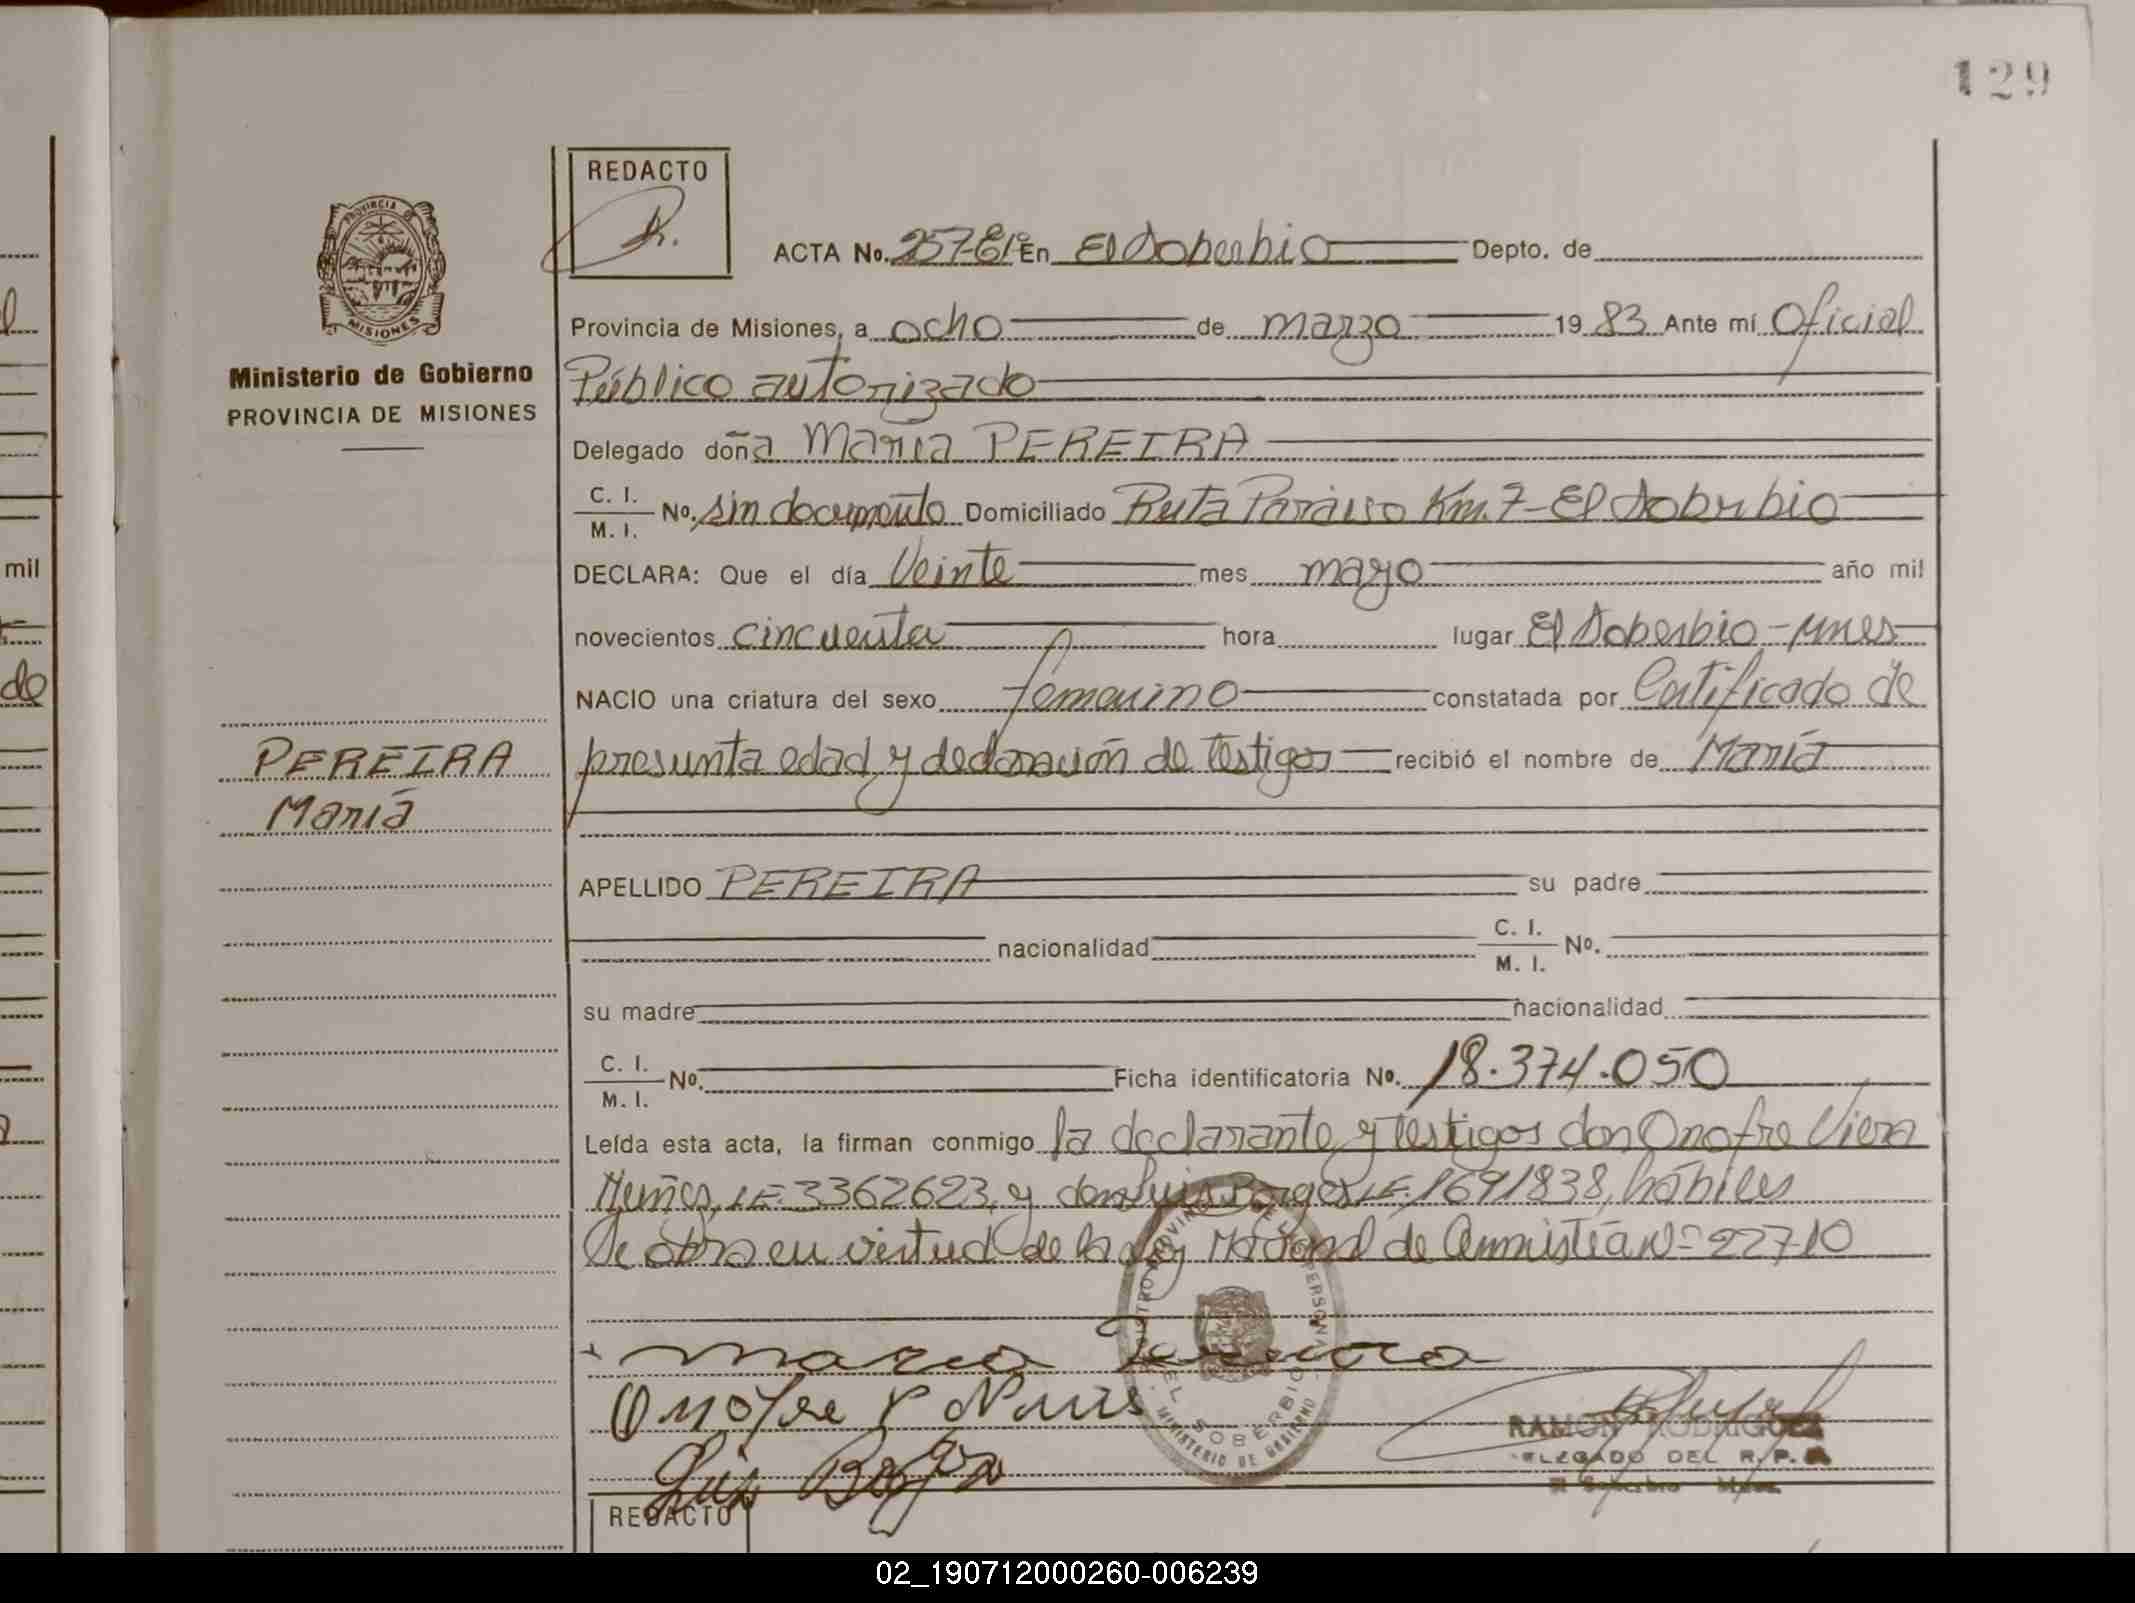 129
REDACTO
PROVINCIA DE
MISIONES
ACTA No. 257-E/ En El Soberbio Depto. de
Provincia de Misiones, a ocho de marzo 19 83 Ante mí Oficial
Ministerio de Gobierno
PROVINCIA DE MISIONES
Público autorizado
Delegado doña Maria PEREIRA
C. I.
M. I.
No. sin documento Domiciliado Ruta Paraiso Km. 7 - El Soberbio
DECLARA: Que el día Veinte mes mayo año mil
novecientos cincuenta hora lugar El Soberbio -
NACIO una criatura del sexo femenino constatada por Certificado de
PEREIRA
María
presunta edad y declaración de testigos recibió el nombre de María
APELLIDO PEREIRA su padre
nacionalidad C. I.
M. I. No.
su madre nacionalidad
C. I.
M. I. No. Ficha identificatoria No. 18.374.050
Leída esta acta, la firman conmigo la declarante y testigos don Onofre Viera
LE 3362623, y don Luis Borges LE. 1691838, hábiles
Se en virtud de la Ley Nacional de Amnistía Nº 22710
Maria Pereira
Onofre V
Luis
EL SOBERBIO
MINISTERIO DE GOBIERNO
RAMON RODRIGUEZ
DELEGADO DEL R. P.
El Soberbio
REDACTO
mil
do
02_190712000260-006239